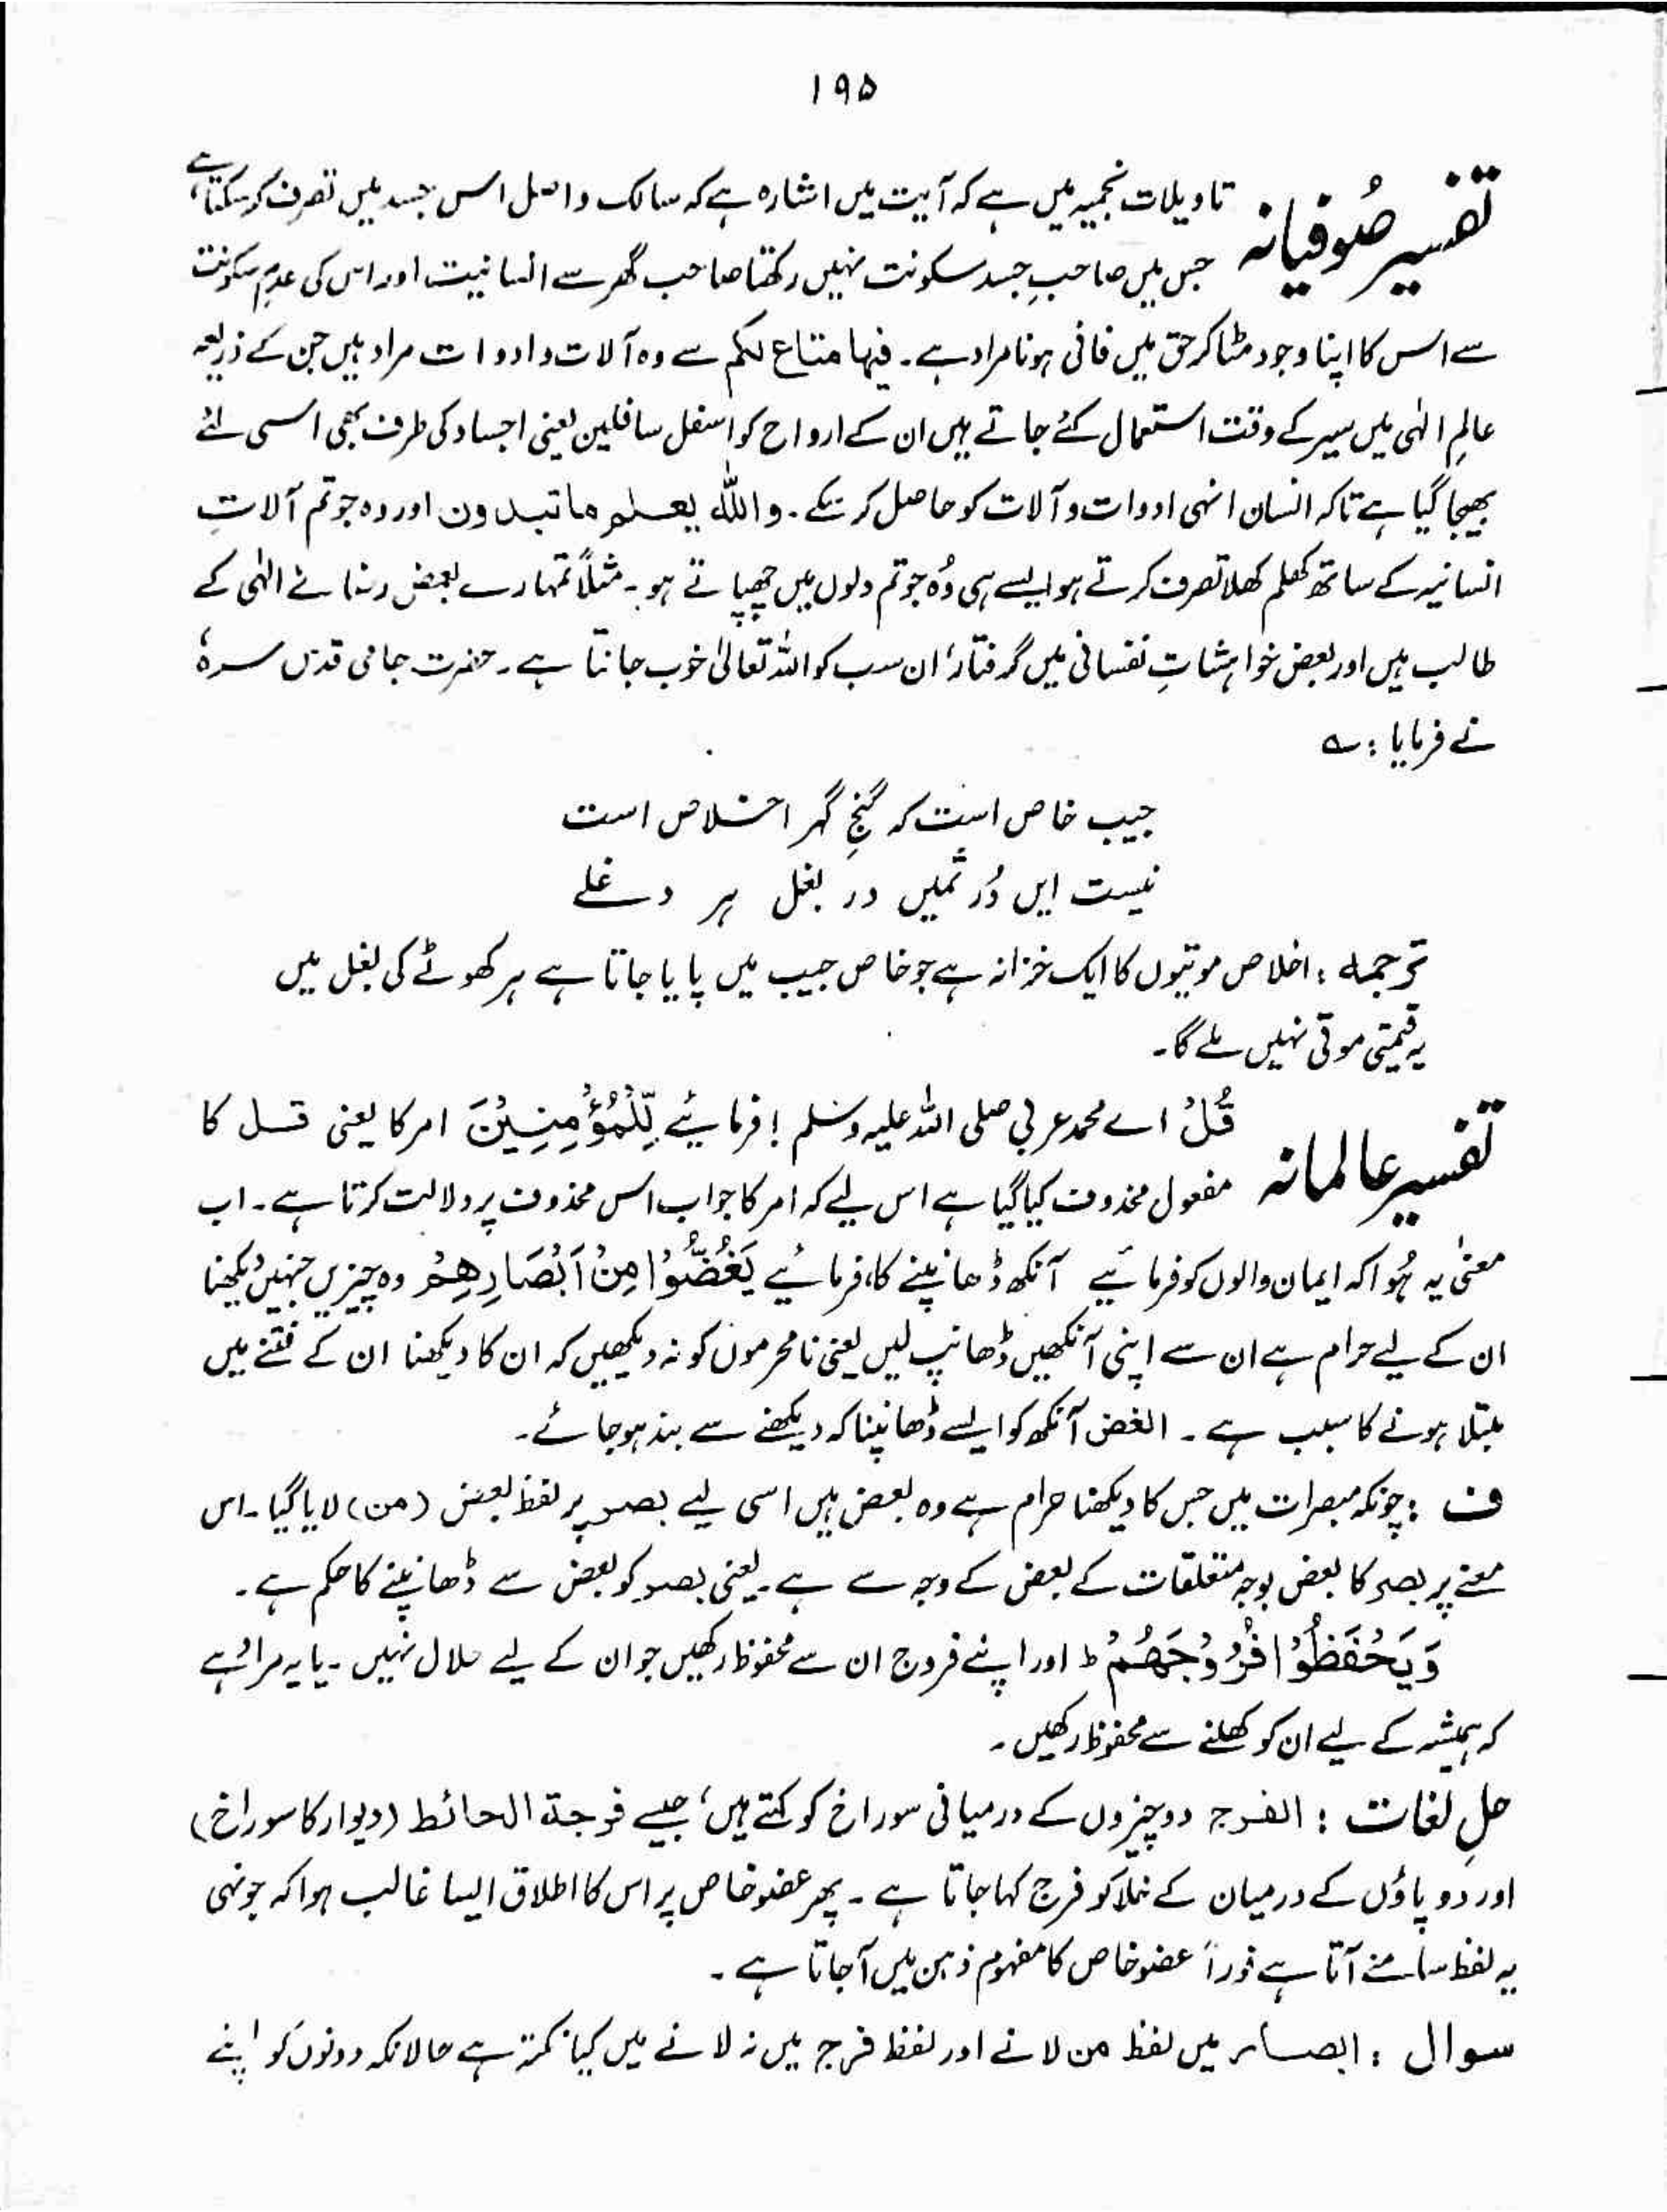 ۱۹۵
تفسیر صُوفیانہ
تاویلات نجمیہ میں ہے کہ آیت میں اشارہ ہے کہ سالک واصل اس جسد میں تصرف کر سکتا ہے،
جس میں صاحبِ جسد سکونت نہیں رکھتا صاحب گھر سے انسانیت اور اس کی عدمِ سکونت
سے اس کا اپنا وجود مٹا کر حق میں فانی ہونا مراد ہے۔ فیہا متاع لکم سے وہ آلات و ادوات مراد ہیں جن کے ذریعہ
عالمِ الٰہی میں سیر کے وقت استعمال کئے جاتے ہیں ان کے ارواح کو اسفل سافلین یعنی اجساد کی طرف بھی اسی لئے
بھیجا گیا ہے تاکہ انسان انہی ادوات و آلات کو حاصل کر سکے۔ واللہ یعلم ماتبدون اور وہ جو تم آلاتِ
انسانیہ کے ساتھ کھلم کھلا تصرف کرتے ہو ایسے ہی وُہ جو تم دلوں میں چھپاتے ہو۔ مثلاً تمہارے بعض رضائے الٰہی کے
طالب ہیں اور بعض خواہشاتِ نفسانی میں گرفتار، ان سب کو اللہ تعالیٰ خوب جانتا ہے۔ حضرت جامی قدس سرہٗ
نے فرمایا : ؎
جیب خاص است کہ گنجِ گہر اخلاص است
نیست ایں دُر ثمیں در بغل ہر دغلے
ترجمہ : اخلاص موتیوں کا ایک خزانہ ہے جو خاص جیب میں پایا جاتا ہے ہر کھوٹے کی بغل میں
یہ قیمتی موتی نہیں ملے گا۔
تفسیر عالمانہ
قُلْ اے محمد عربی صلی اللہ علیہ وسلم ! فرمائیے لِّلْمُؤْمِنِیْنَ امر کا یعنی قل کا
مفعول محذوف کیا گیا ہے اس لیے کہ امر کا جواب اس محذوف پر دلالت کرتا ہے۔ اب
معنیٰ یہ ہُوا کہ ایمان والوں کو فرمائیے آنکھ ڈھانپنے کا، فرمائیے یَغُضُّوْا مِنْ اَبْصَارِهِمْ وہ چیزیں جنہیں دیکھنا
ان کے لیے حرام ہے ان سے اپنی آنکھیں ڈھانپ لیں یعنی نامحرموں کو نہ دیکھیں کہ ان کا دیکھنا ان کے فتنے میں
مبتلا ہونے کا سبب ہے۔ الغض آنکھ کو ایسے ڈھانپنا کہ دیکھنے سے بند ہو جائے۔
ف : چونکہ مبصرات میں جس کا دیکھنا حرام ہے وہ بعض ہیں اسی لیے بصر پر لفظ بعض (من) لایا گیا۔ اس
معنے پر بصر کا بعض بوجہ متعلقات کے بعض کے وجہ سے ہے۔ یعنی بصر کو بعض سے ڈھانپنے کا حکم ہے۔
وَیَحْفَظُوْا فُرُوْجَهُمْ ط اور اپنے فروج ان سے محفوظ رکھیں جو ان کے لیے حلال نہیں۔ یا یہ مراد ہے
کہ ہمیشہ کے لیے ان کو کھلنے سے محفوظ رکھیں۔
حلِ لغات : الفرج دو چیزوں کے درمیانی سوراخ کو کہتے ہیں، جیسے فرجة الحائط (دیوار کا سوراخ)
اور دو پاؤں کے درمیان کے خلا کو فرج کہا جاتا ہے۔ پھر عضو خاص پر اس کا اطلاق ایسا غالب ہوا کہ جونہی
یہ لفظ سامنے آتا ہے فوراً عضو خاص کا مفہوم ذہن میں آجاتا ہے۔
سوال : ابصار میں لفظ من لانے اور لفظ فرج میں نہ لانے میں کیا نکتہ ہے حالانکہ دونوں کو اپنے